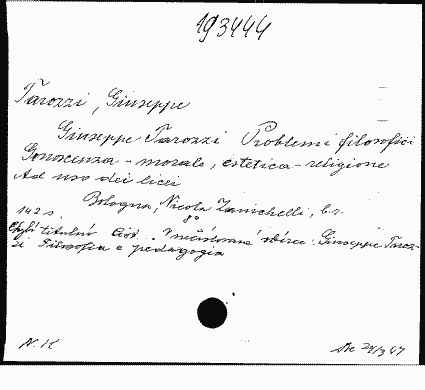 193444
Tarozzi, Giuseppe
Giuseppe Tarozzi Problemi filosofici
Conoscenza - morale, estetica - religione
Ad uso dei licei
Bologna, Nicola Zanichelli, b.r.
142 s. 8°
Chybí titulní . V nečíslované sbírce: Giuseppe Taroz-
zi Filosofia e pedagogia
N.K 24/3 67